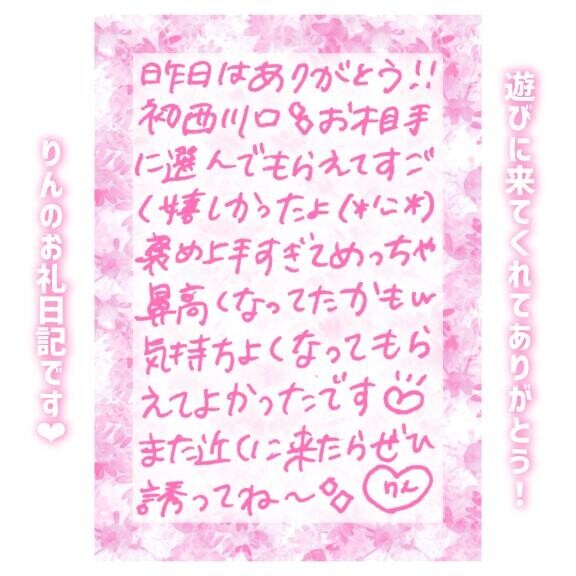 遊びに来てくれてありがとう！
昨日はありがとう!!
初西川口お相手
に選んでもらえてすご
く嬉しかったよ(*'ω'*)
褒め上手すぎてめっちゃ
鼻高くなってたかもw
気持ちよくなってもら
えてよかったです♡
また近くに来たらぜひ
誘ってね〜
りん
りんのお礼日記です❤